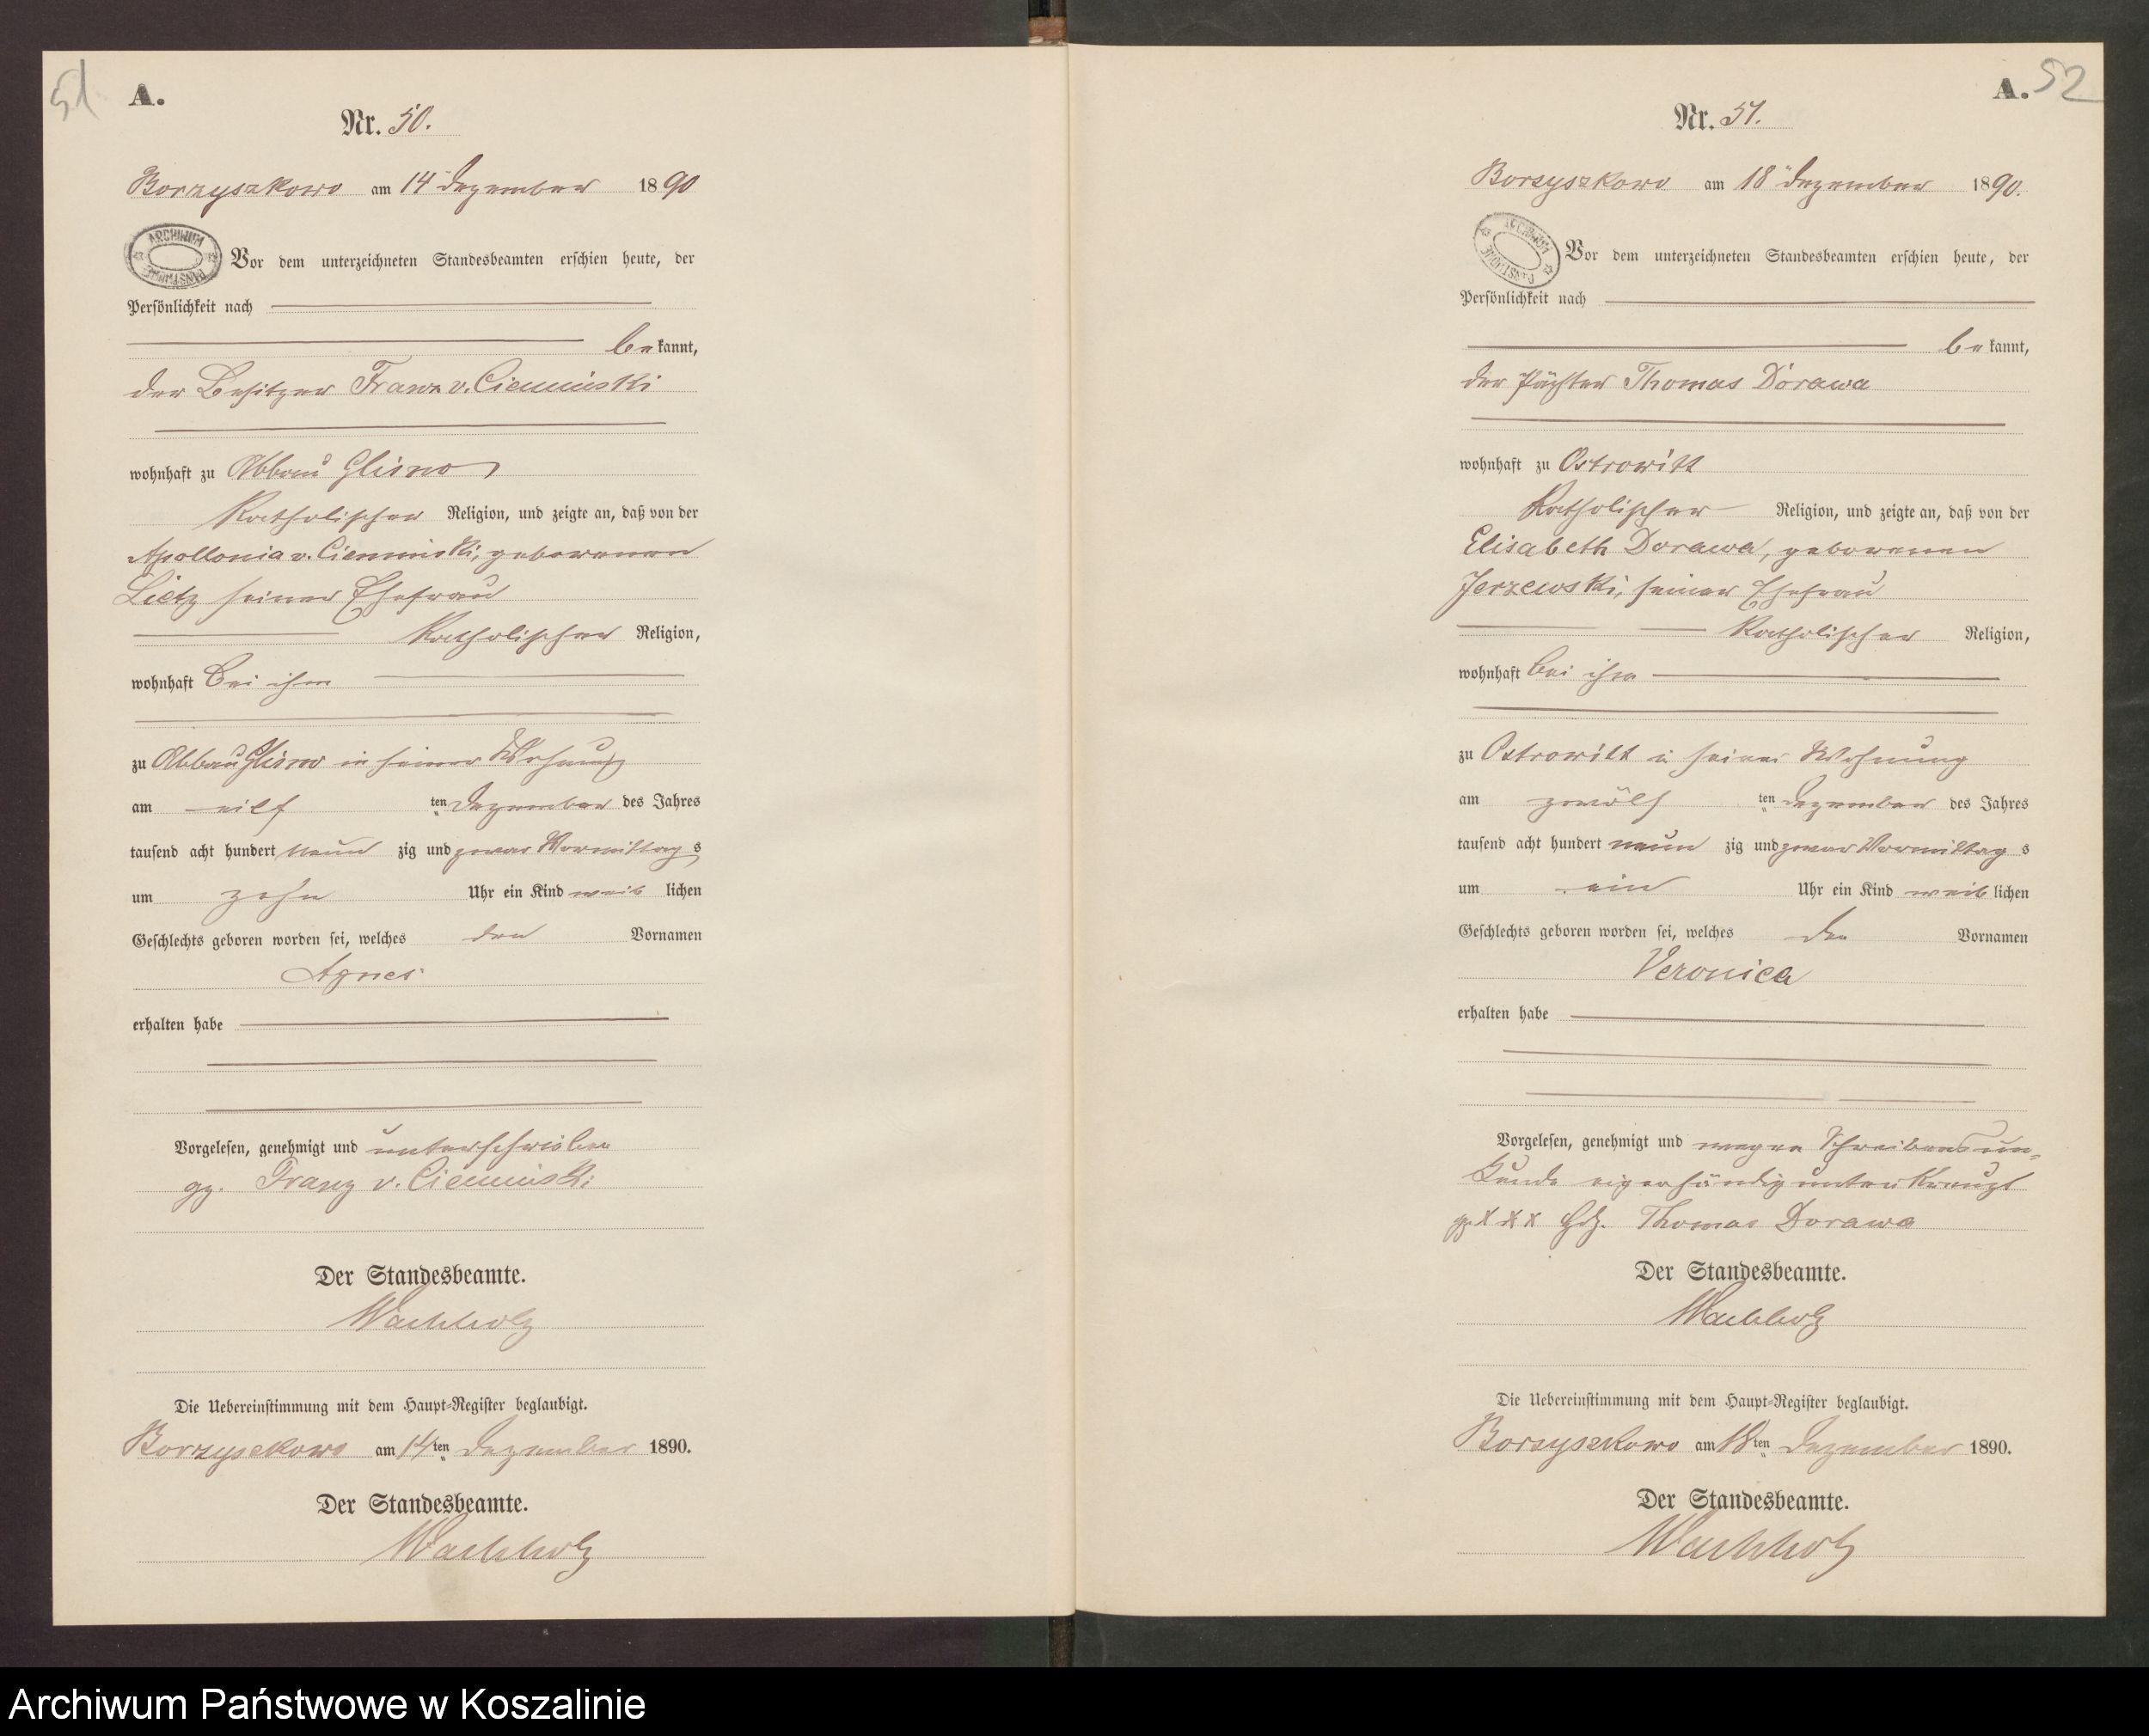 51
A.
Nr. 50.
Borzyszkowo am 14 Dezember 1890
ARCHIWUM PAŃSTWOWE
Vor dem unterzeichneten Standesbeamten erschien heute, der
Persönlichkeit nach
bekannt,
der Besitzer Franz v. Cieminski
wohnhaft zu Abbau Glisno
katholischer Religion, und zeigte an, daß von der
Apollonia v. Cieminski, geborenen
Lietz seiner Ehefrau
katholischer Religion,
wohnhaft bei ihm
zu Abbau Glisno in seiner Wohnung
am eilf ten Dezember des Jahres
tausend acht hundert neun zig und zwar Vormittags
um zehn Uhr ein Kind weib lichen
Geschlechts geboren worden sei, welches den Vornamen
Agnes
erhalten habe
Vorgelesen, genehmigt und unterschrieben
gz. Franz v. Cieminski
Der Standesbeamte.
Wachholz
Die Uebereinstimmung mit dem Haupt-Register beglaubigt.
Borzyszkowo am 14ten Dezember 1890.
Der Standesbeamte.
Wachholz
A. 52
Nr. 51.
Borzyszkowo am 18 Dezember 1890.
ARCHIWUM PAŃSTWOWE
Vor dem unterzeichneten Standesbeamten erschien heute, der
Persönlichkeit nach
bekannt,
der Pächter Thomas Dorawa
wohnhaft zu Ostrowitt
katholischer Religion, und zeigte an, daß von der
Elisabeth Dorawa, geborenen
Jerzewski, seiner Ehefrau
katholischer Religion,
wohnhaft bei ihm
zu Ostrowitt in seiner Wohnung
am zwölf ten Dezember des Jahres
tausend acht hundert neun zig und zwar Vormittags
um ein Uhr ein Kind weib lichen
Geschlechts geboren worden sei, welches den Vornamen
Veronica
erhalten habe
Vorgelesen, genehmigt und wegen Schreibensun-
kunde eigenhändig unterkreuzt
gz. X X X Hdz. Thomas Dorawa
Der Standesbeamte.
Wachholz
Die Uebereinstimmung mit dem Haupt-Register beglaubigt.
Borzyszkowo am 18ten Dezember 1890.
Der Standesbeamte.
Wachholz
Archiwum Państwowe w Koszalinie